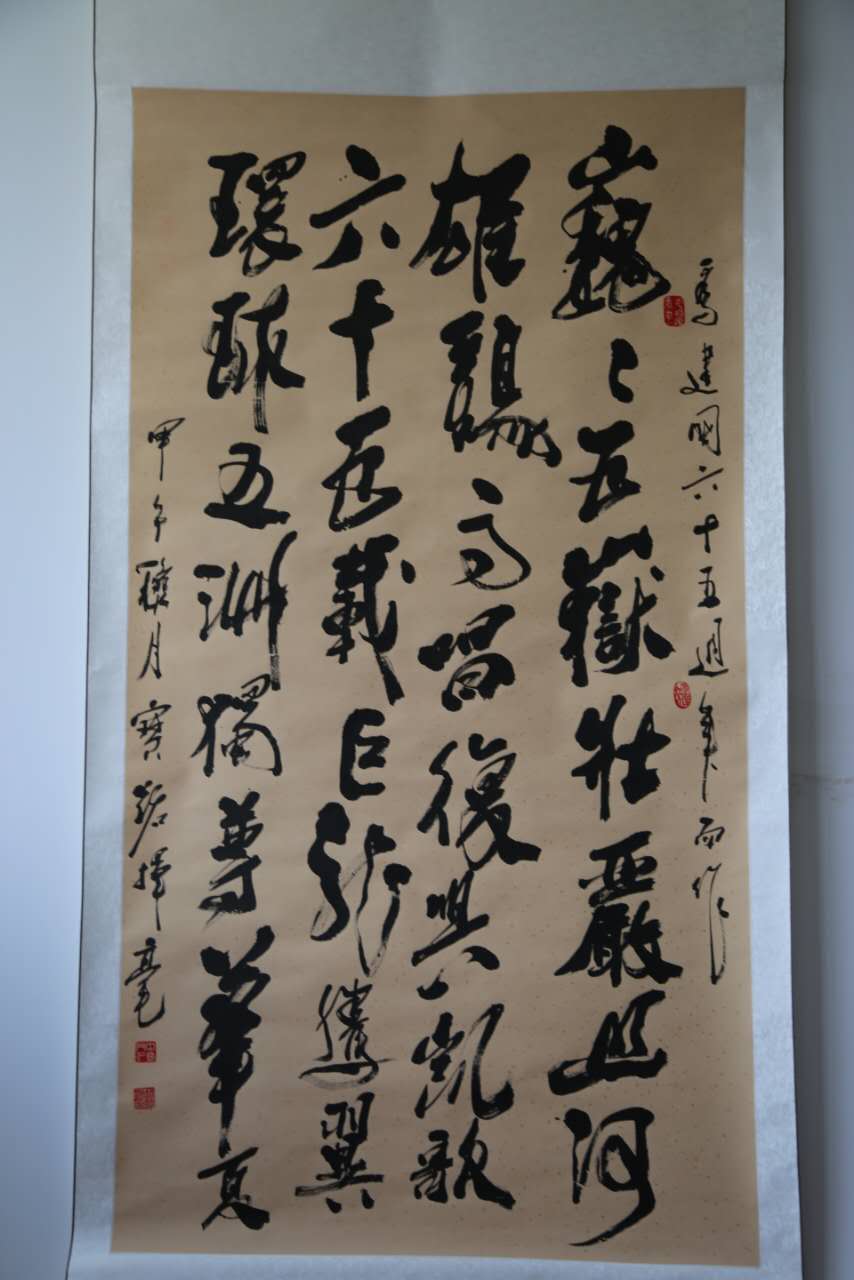 為建國六十五週年而作
巍〻五嶽壯嚴山河
雄鷄高唱復興凱歌
六十五載巨龍騰翼
環球五洲獨尊華夏
甲午月寶揮毫